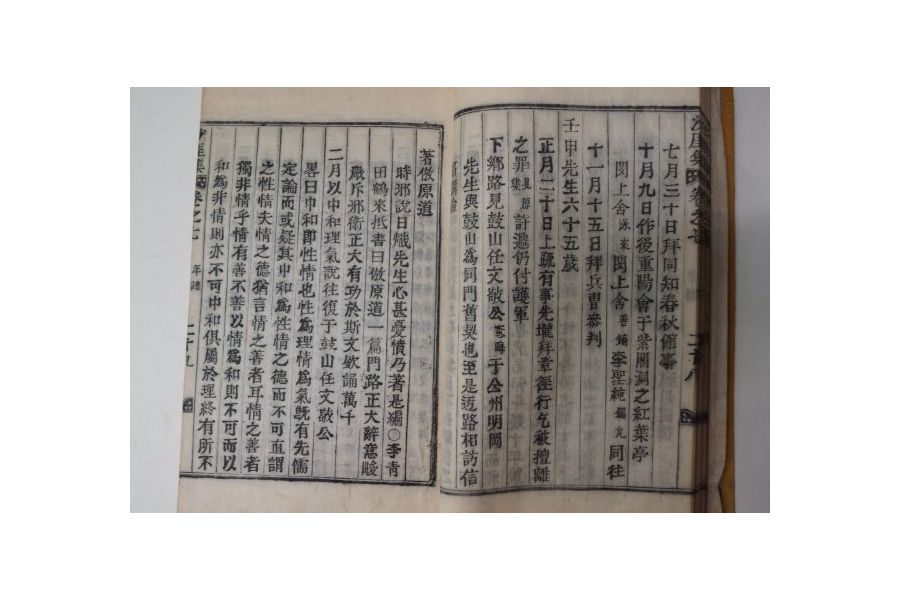 七月三十日拜同知春秋館事
十月九日作後重陽會于紫閣洞之紅葉亭
閔上舍泳來閔上舍善鎬李聖純 九同往
十一月十五日拜兵曹參判
壬申先生六十五歲
正月二十日上疏有事先壠拜章徑行乞被擅離
之罪 集許遞仍付護軍
下鄉路見鼓山任文敬公憲晦于公州明岡
先生與鼓山爲同門舊契也至是迂路相訪信
二十八
著倣原道
時邪說日熾先生心甚憂憤乃著是編○李青
田鶴來抵書曰倣原道一篇門路正大辭意峻
嚴斥邪衛正大有功於斯文欽誦萬千
二月以中和理氣說往復于鼓山任文敬公
畧曰中和即性情也性爲理情爲氣旣有先儒
定論而或疑其中和爲性情之德而不可直謂
之性情夫情之德猶言情之善者耳情之善者
獨非情乎情有善不善以情爲和則不可而以
和爲非情則亦不可中和俱屬於理終有所不
集 卷之七 年譜 二十九